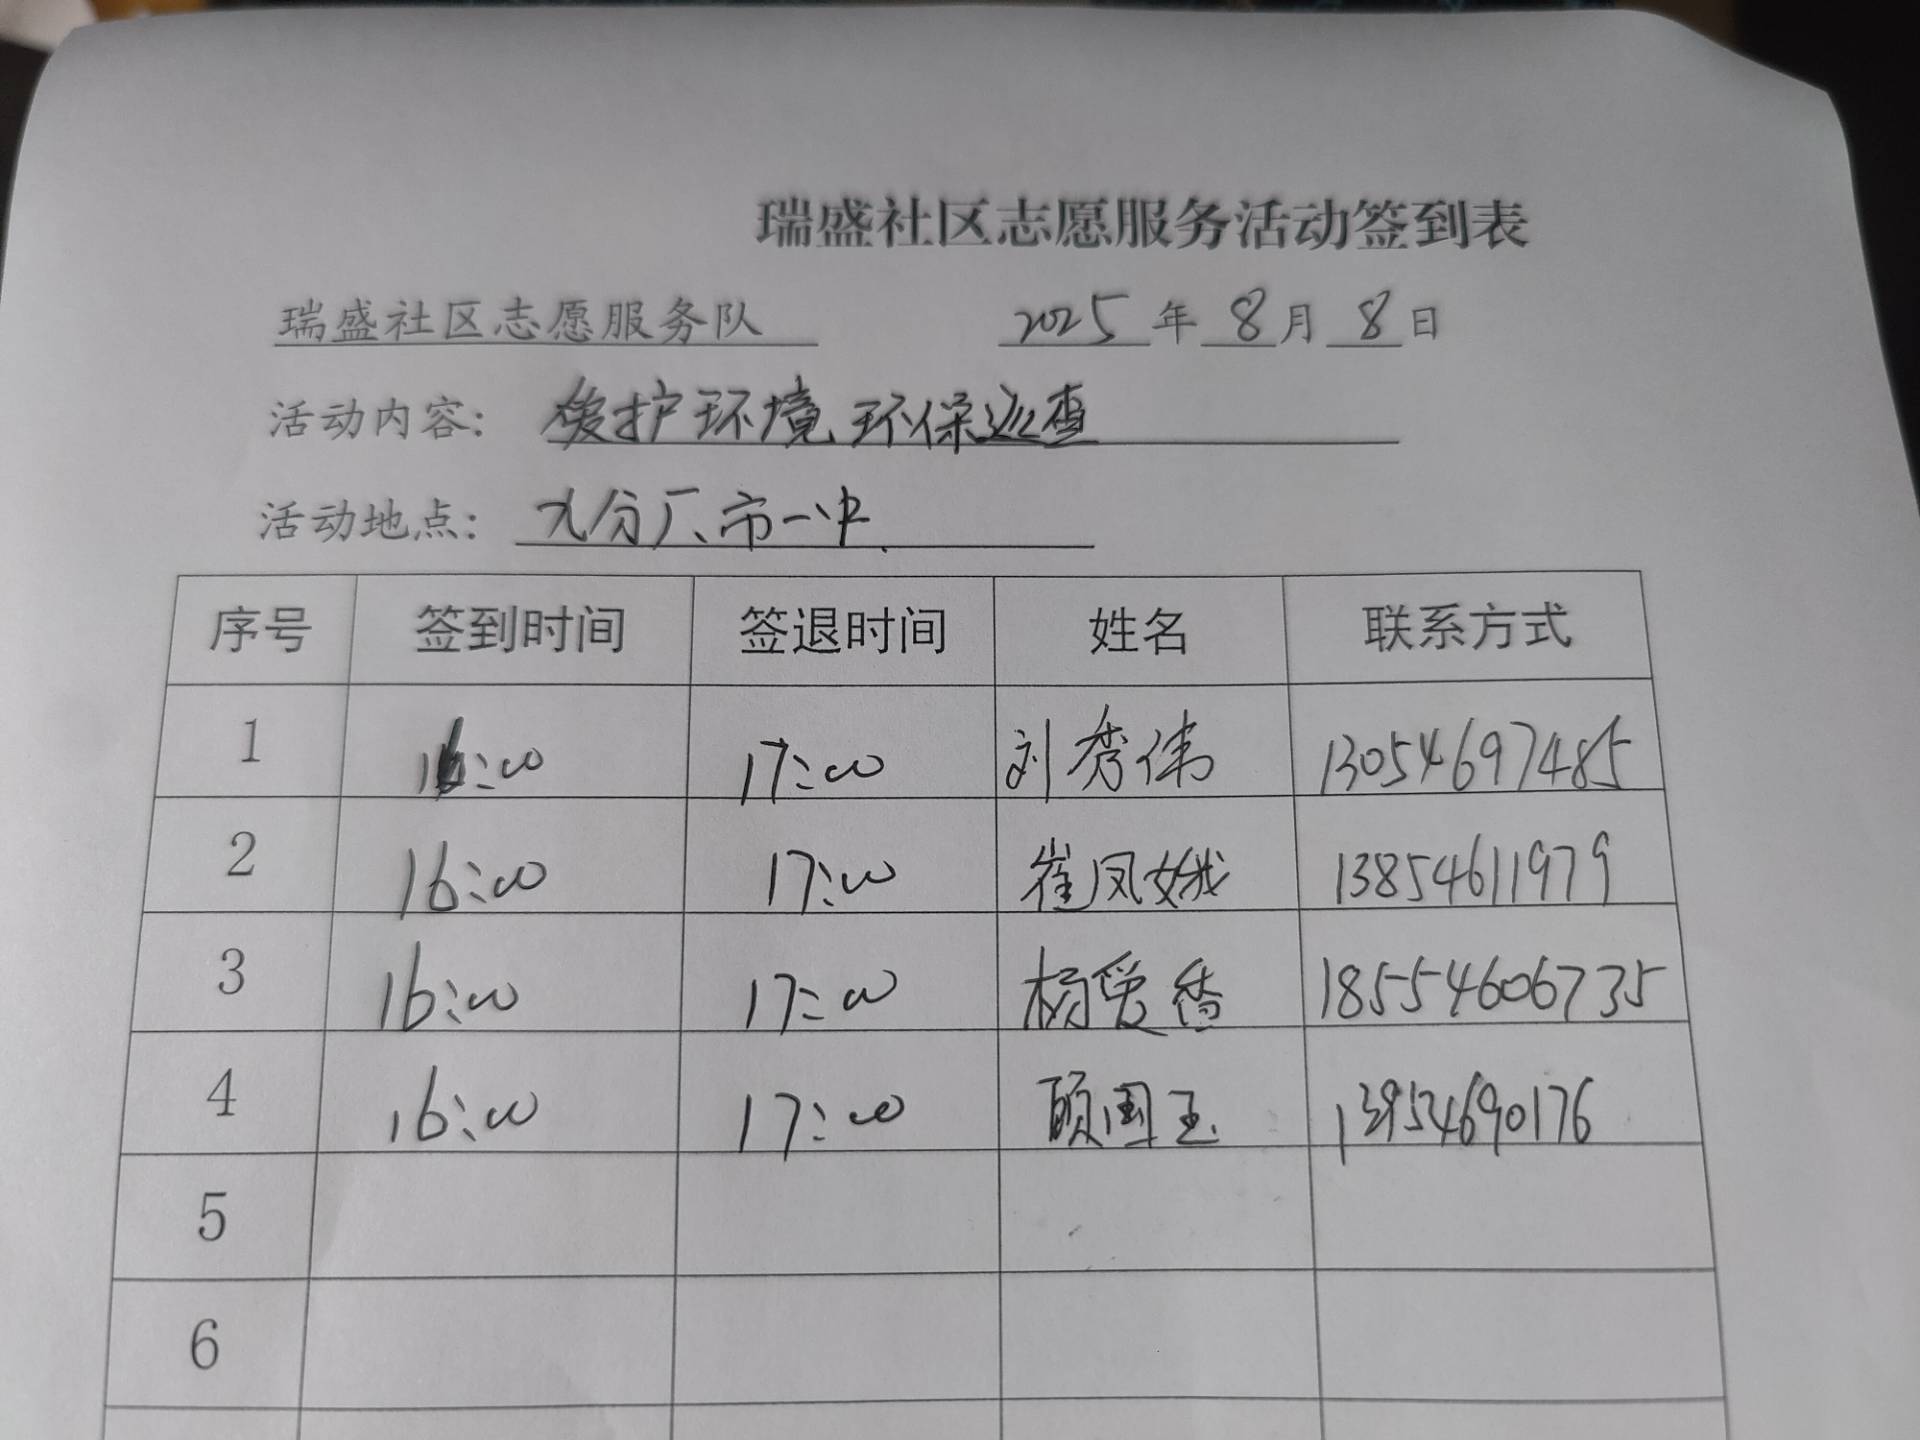 瑞盛社区志愿服务活动签到表
瑞盛社区志愿服务队 2025年8月8日
活动内容：爱护环境 环保巡查
活动地点：九分厂、市一中.
序号 签到时间 签退时间 姓名 联系方式
1 16:00 17:00 刘秀伟 13054697485
2 16:00 17:00 崔凤娥 13854611979
3 16:00 17:00 杨爱香 18554606735
4 16:00 17:00 顾国玉 13954690176
5
6